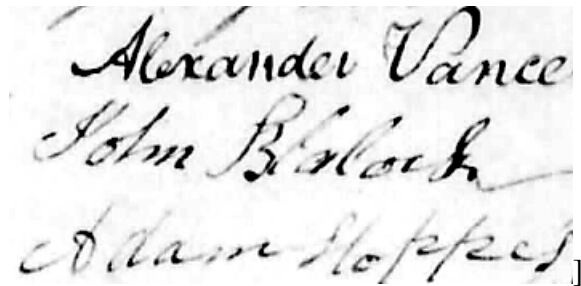 Alexander Vance
John Blalock
Adam Hoppes
]